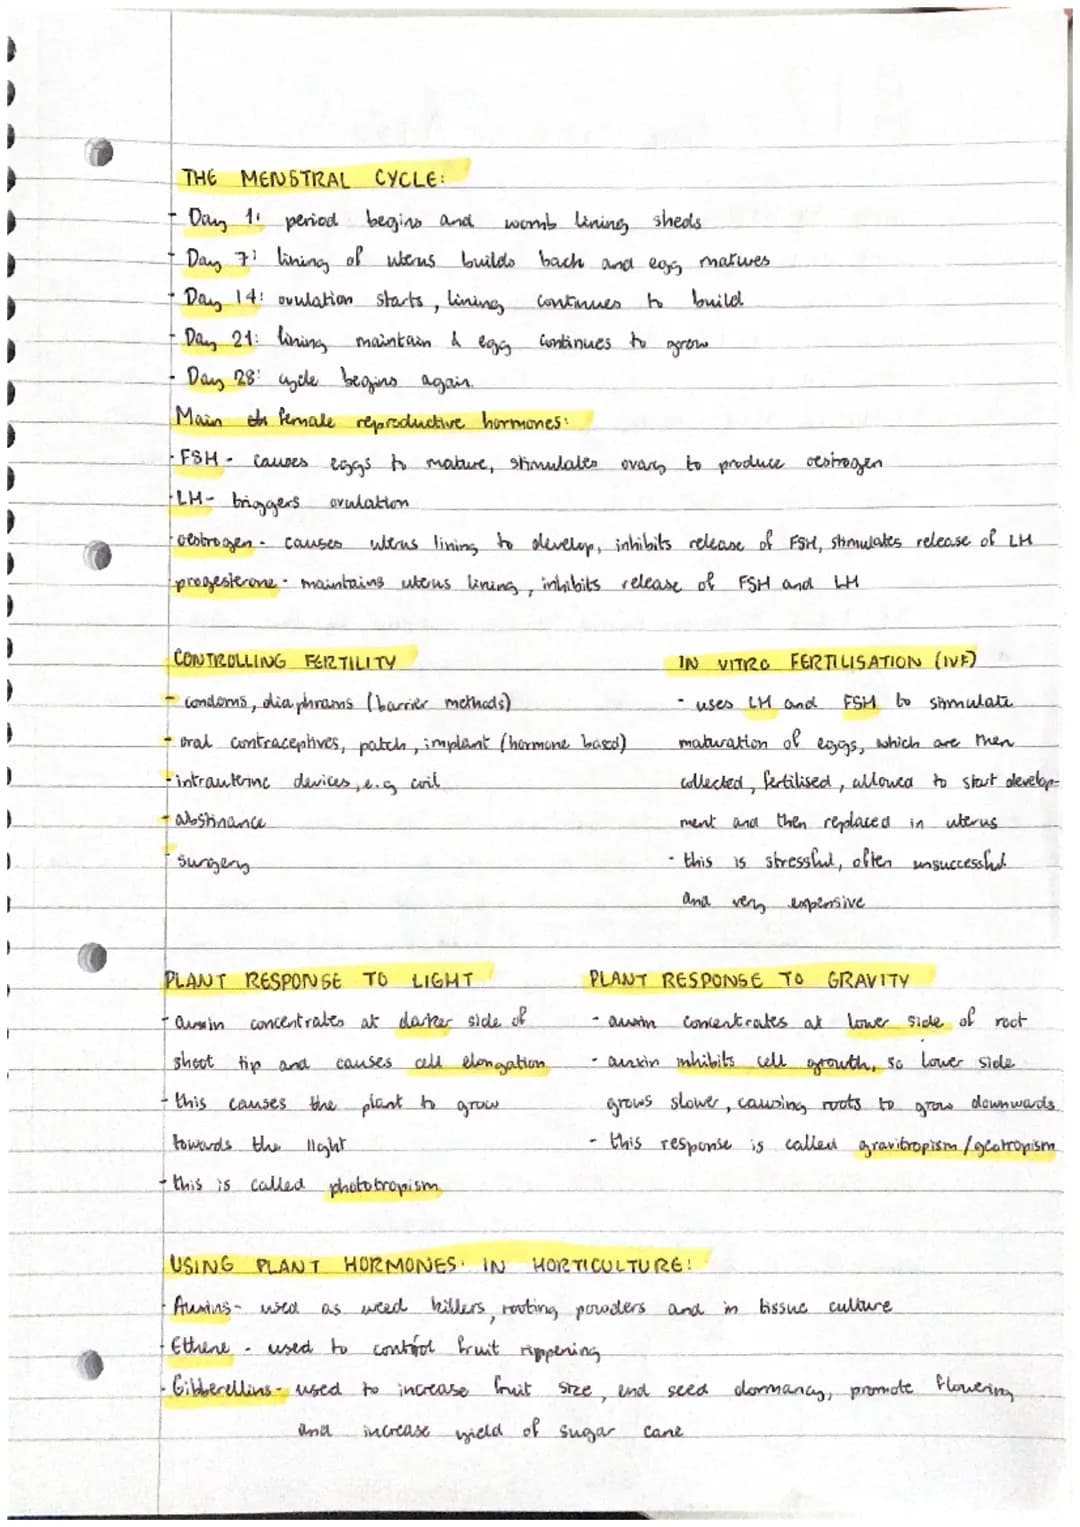 THE MENSTRAL CYCLE:
- Day 1: period begins and womb lining sheds
- Day 7: lining of uterus builds back and egg matures
- Day 14: ovulation starts, lining continues to build
- Day 21: lining maintain & egg continues to grow
- Day 28: cycle begins again.
Main female reproductive hormones:
- FSH - causes eggs to mature, stimulates ovary to produce oestrogen
- LH - triggers ovulation
- oestrogen - causes uterus lining to develop, inhibits release of FSH, stimulates release of LH
progesterone - maintains uterus lining, inhibits release of FSH and LH
CONTROLLING FERTILITY
- condoms, diaphrams (barrier methods)
- oral contraceptives, patch, implant (hormone based)
- intrauterine devices, e.g coil
- abstinance
- surgery
IN VITRO FERTILISATION (IVF)
- uses LH and FSH to stimulate
maturation of eggs, which are then
collected, fertilised, allowed to start develop-
ment and then replaced in uterus
- this is stressful, often unsuccessful
and very expensive
PLANT RESPONSE TO LIGHT
- auxin concentrates at darker side of
shoot tip and causes cell elongation
- this causes the plant to grow
towards the light
- this is called phototropism
PLANT RESPONSE TO GRAVITY
- auxin concentrates at lower side of root
- auxin inhibits cell growth, so lower side
grows slower, causing roots to grow downwards
- this response is called gravitropism/geotropism
USING PLANT HORMONES IN HORTICULTURE:
- Auxins - used as weed killers, rooting powders and in tissue culture
- Ethene - used to control fruit rippening
- Gibberellins - used to increase fruit size, end seed dormancy, promote flowering
and increase yield of sugar cane